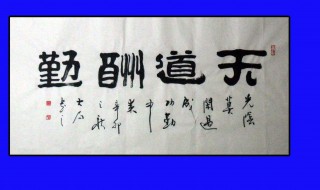 天道酬勤
光陰
莫
閒過
成
功勤
中
來
辛卯
之秋